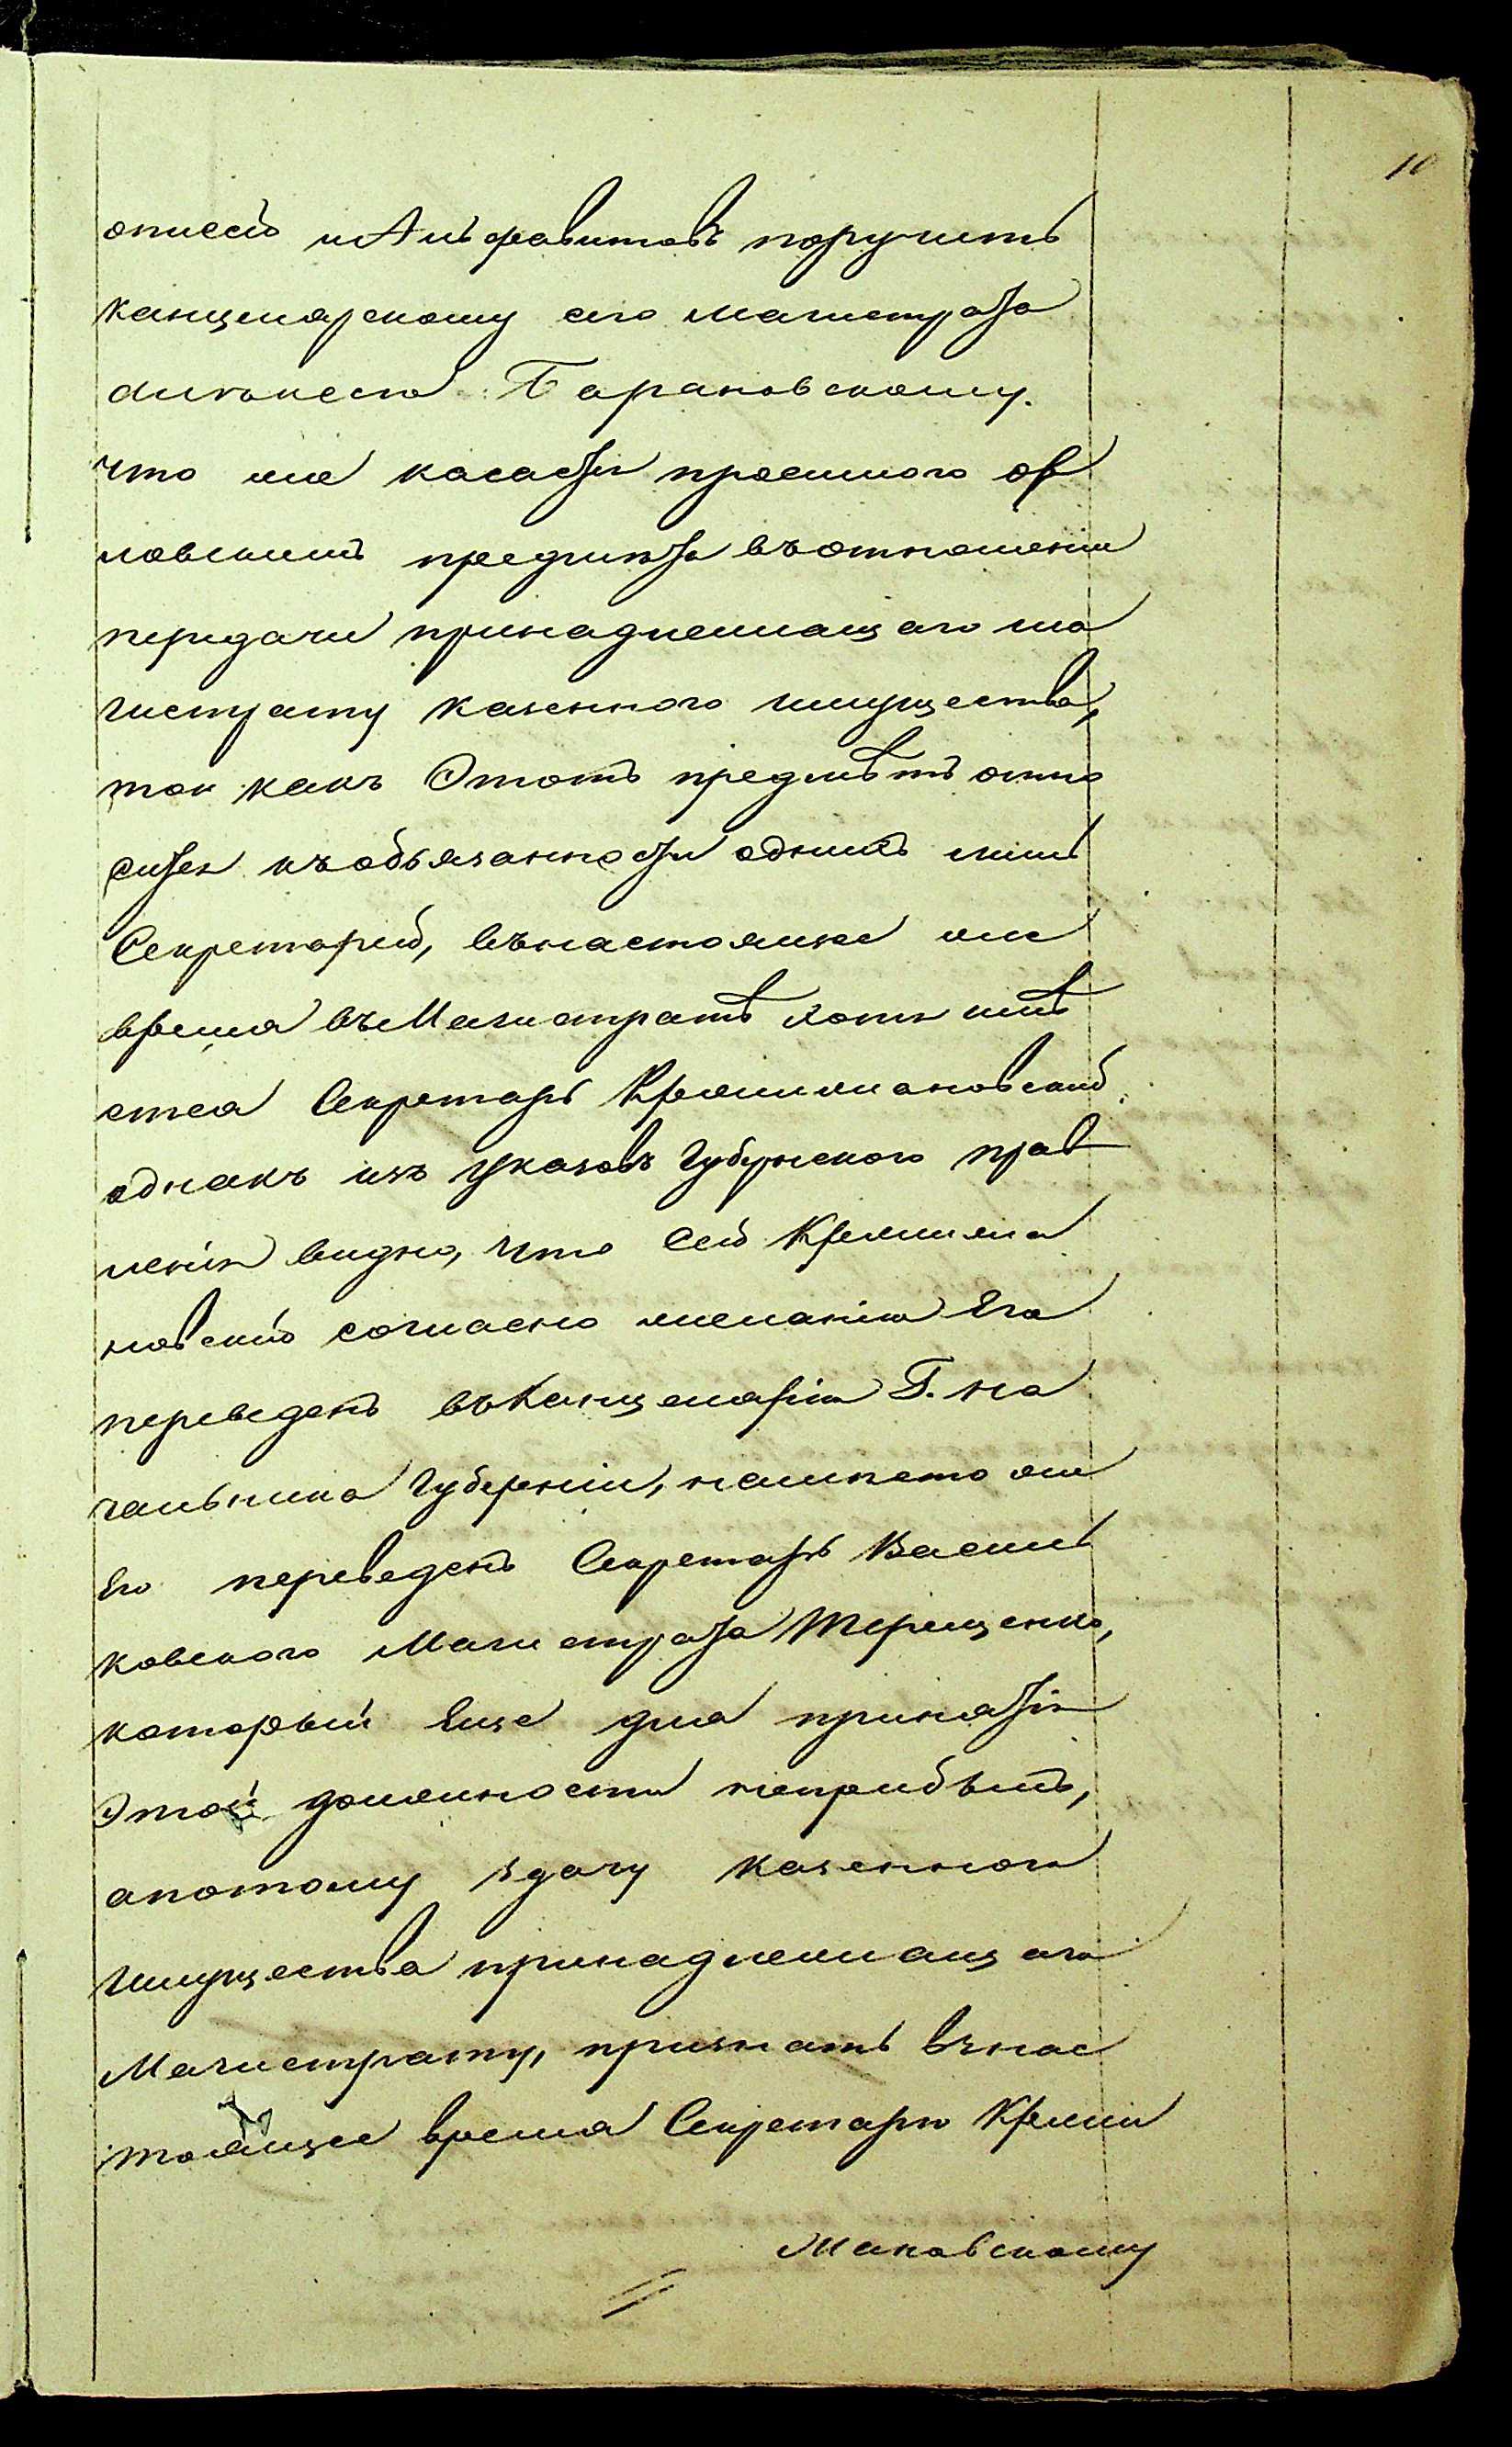 10
описей и Алъфавитовъ поручить
канцелярскому сего магистрата
Барановскому.
что же касается проситого Ор
ловскимъ предмѣта въ отношеніи
передачи принадлежащаго ма
гистрату казенного имущества,
так какъ Этотъ предметъ отно
сится къ обязанности однихъ лишь
Секретарей, въ настоящее же
время въ Магистратѣ хотя имѣ
ется Секретарь Кржижановский
однакъ изъ указовъ Губернского прав
ленія видно, что сей Кржижа
новский согласно желанію Его
переведенъ въ Канцелярію Г. на
чальника Губерніи, на мѣсто же
Его переведенъ Секретарь Василь
ковского Магистрата Терещенко,
который Еще для принятія
Этой должности неприбылъ,
апотому здачу казенного
имущества принадлежащаго
Магистрату, признать внас
тоящее время Секретарю Кржи
жановскому